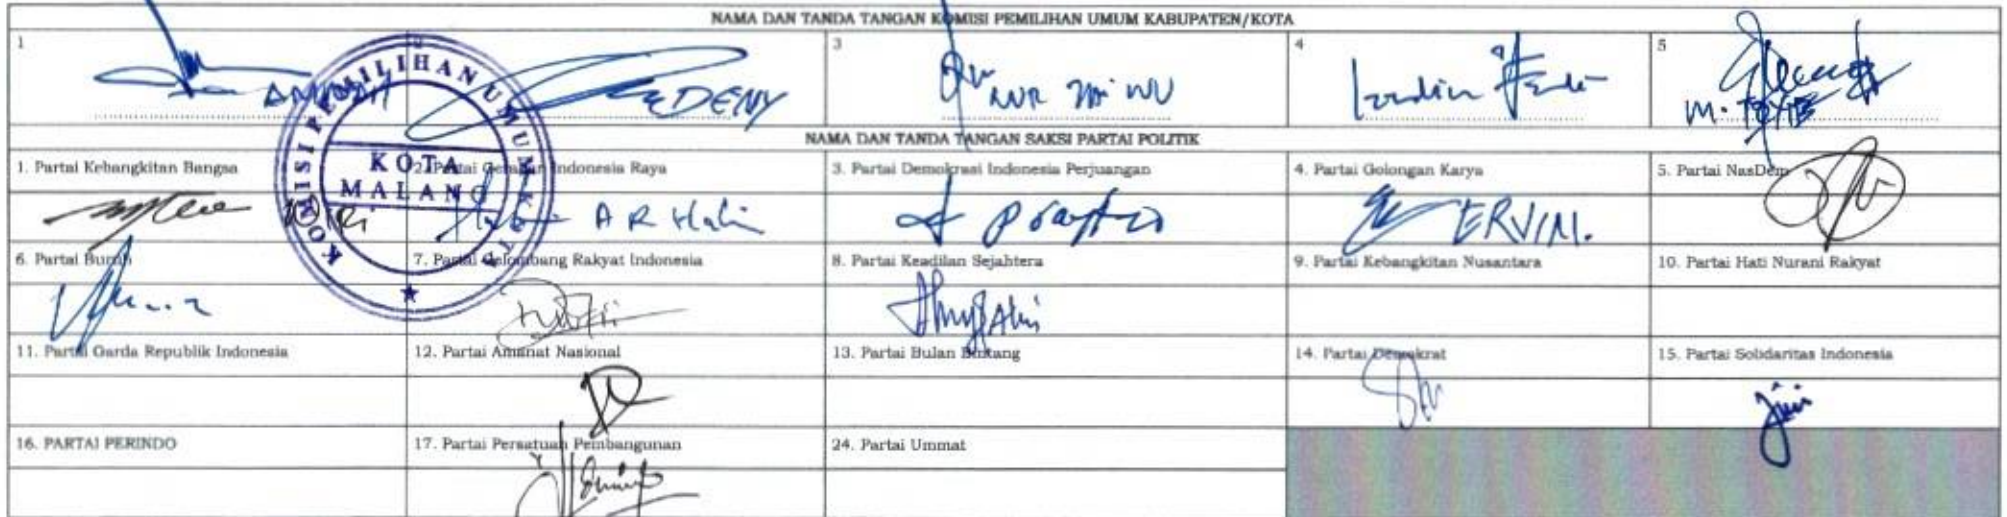 NAMA DAN TANDA TANGAN KOMISI PEMILIHAN UMUM KABUPATEN/KOTA
1 3 4 5
DENY NUR M. TOYIB
KOMISI PEMILIHAN UMUM KOTA
KOTA
MALANG
NAMA DAN TANDA TANGAN SAKSI PARTAI POLITIK
1. Partai Kebangkitan Bangsa 2. Partai Gerakan Indonesia Raya 3. Partai Demokrasi Indonesia Perjuangan 4. Partai Golongan Karya 5. Partai NasDem
A R Hali ERVIN.
6. Partai Buruh 7. Partai Gelombang Rakyat Indonesia 8. Partai Keadilan Sejahtera 9. Partai Kebangkitan Nusantara 10. Partai Hati Nurani Rakyat
11. Partai Garda Republik Indonesia 12. Partai Amanat Nasional 13. Partai Bulan Bintang 14. Partai Demokrat 15. Partai Solidaritas Indonesia
16. PARTAI PERINDO 17. Partai Persatuan Pembangunan 24. Partai Ummat